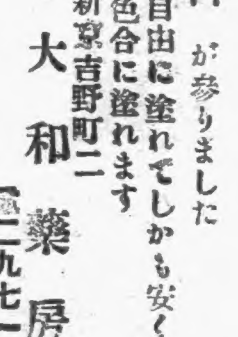 が参りました
自由に塗れてしかも安く
色合に塗れます
新京吉野町二
大和薬房
二九七一